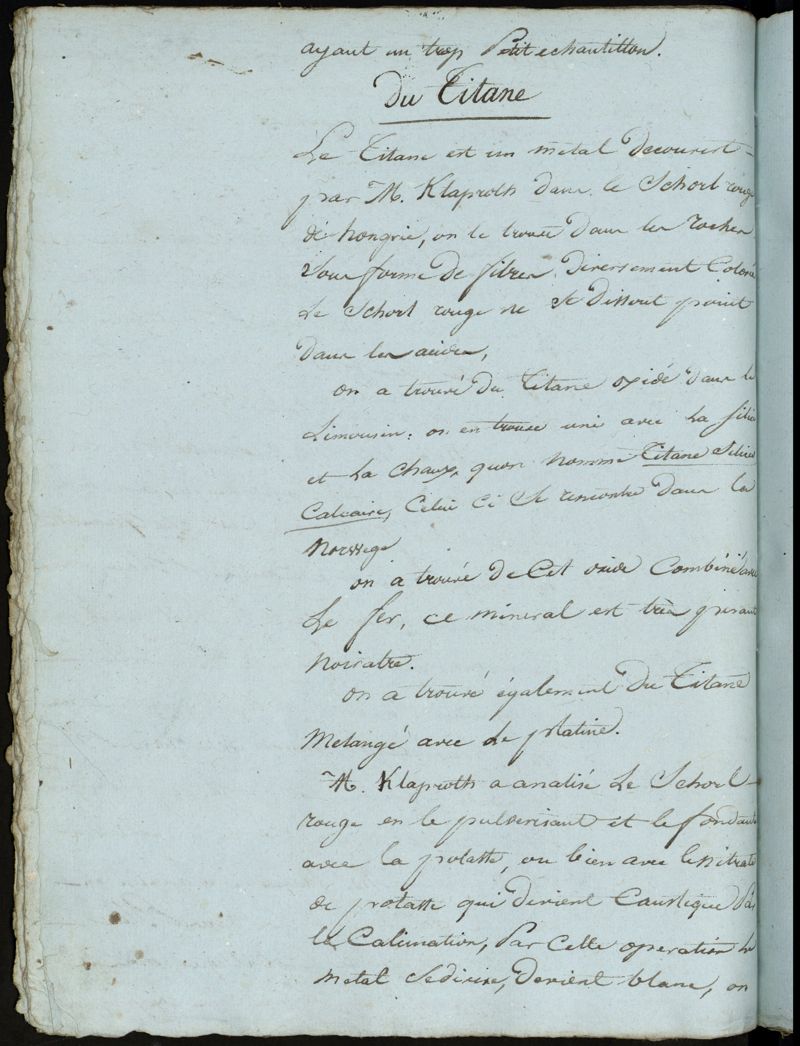 ayant un trop Petit echantillon.
Du Titane
Le Titane est un metal Decouvert
par M. Klaproth dans le Schorl rouge
de hongrie, on le trouve dans les rocher
sous forme de fibres Diversement Coloré
Le Schorl rouge ne se Dissout point
dans les acides,
on a trouvé du Titane oxidé dans le
Limousin. on en trouve uni avec La silice
et La chaux, quon nomme Titane Silico
Calcaire, Celui Ci se rencontre dans la
Norwege
on a trouvé de Cet oxide Combiné avec
Le fer, ce mineral est très pesant
noiratre.
on a trouvé également du Titane
Melangé avec Le platine.
M. Klaproth a analisé Le Schorl
rouge en le pulverisant et le fondant
avec la potasse, ou bien avec le nitrate
de potasse qui devient Caustique Par
la Calcination, Par Cette operation Le
metal se divise, devient blanc, on